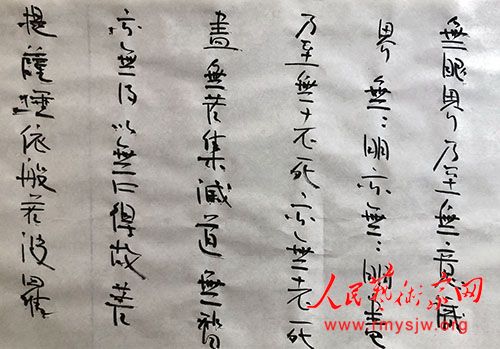 無眼界乃至無意識
界無〻明亦無〻明盡
乃至無老死亦無老死
盡無苦集滅道無智
亦無得以無所得故菩
提薩埵依般若波羅
人民藝術家网
www.rmysjw.org